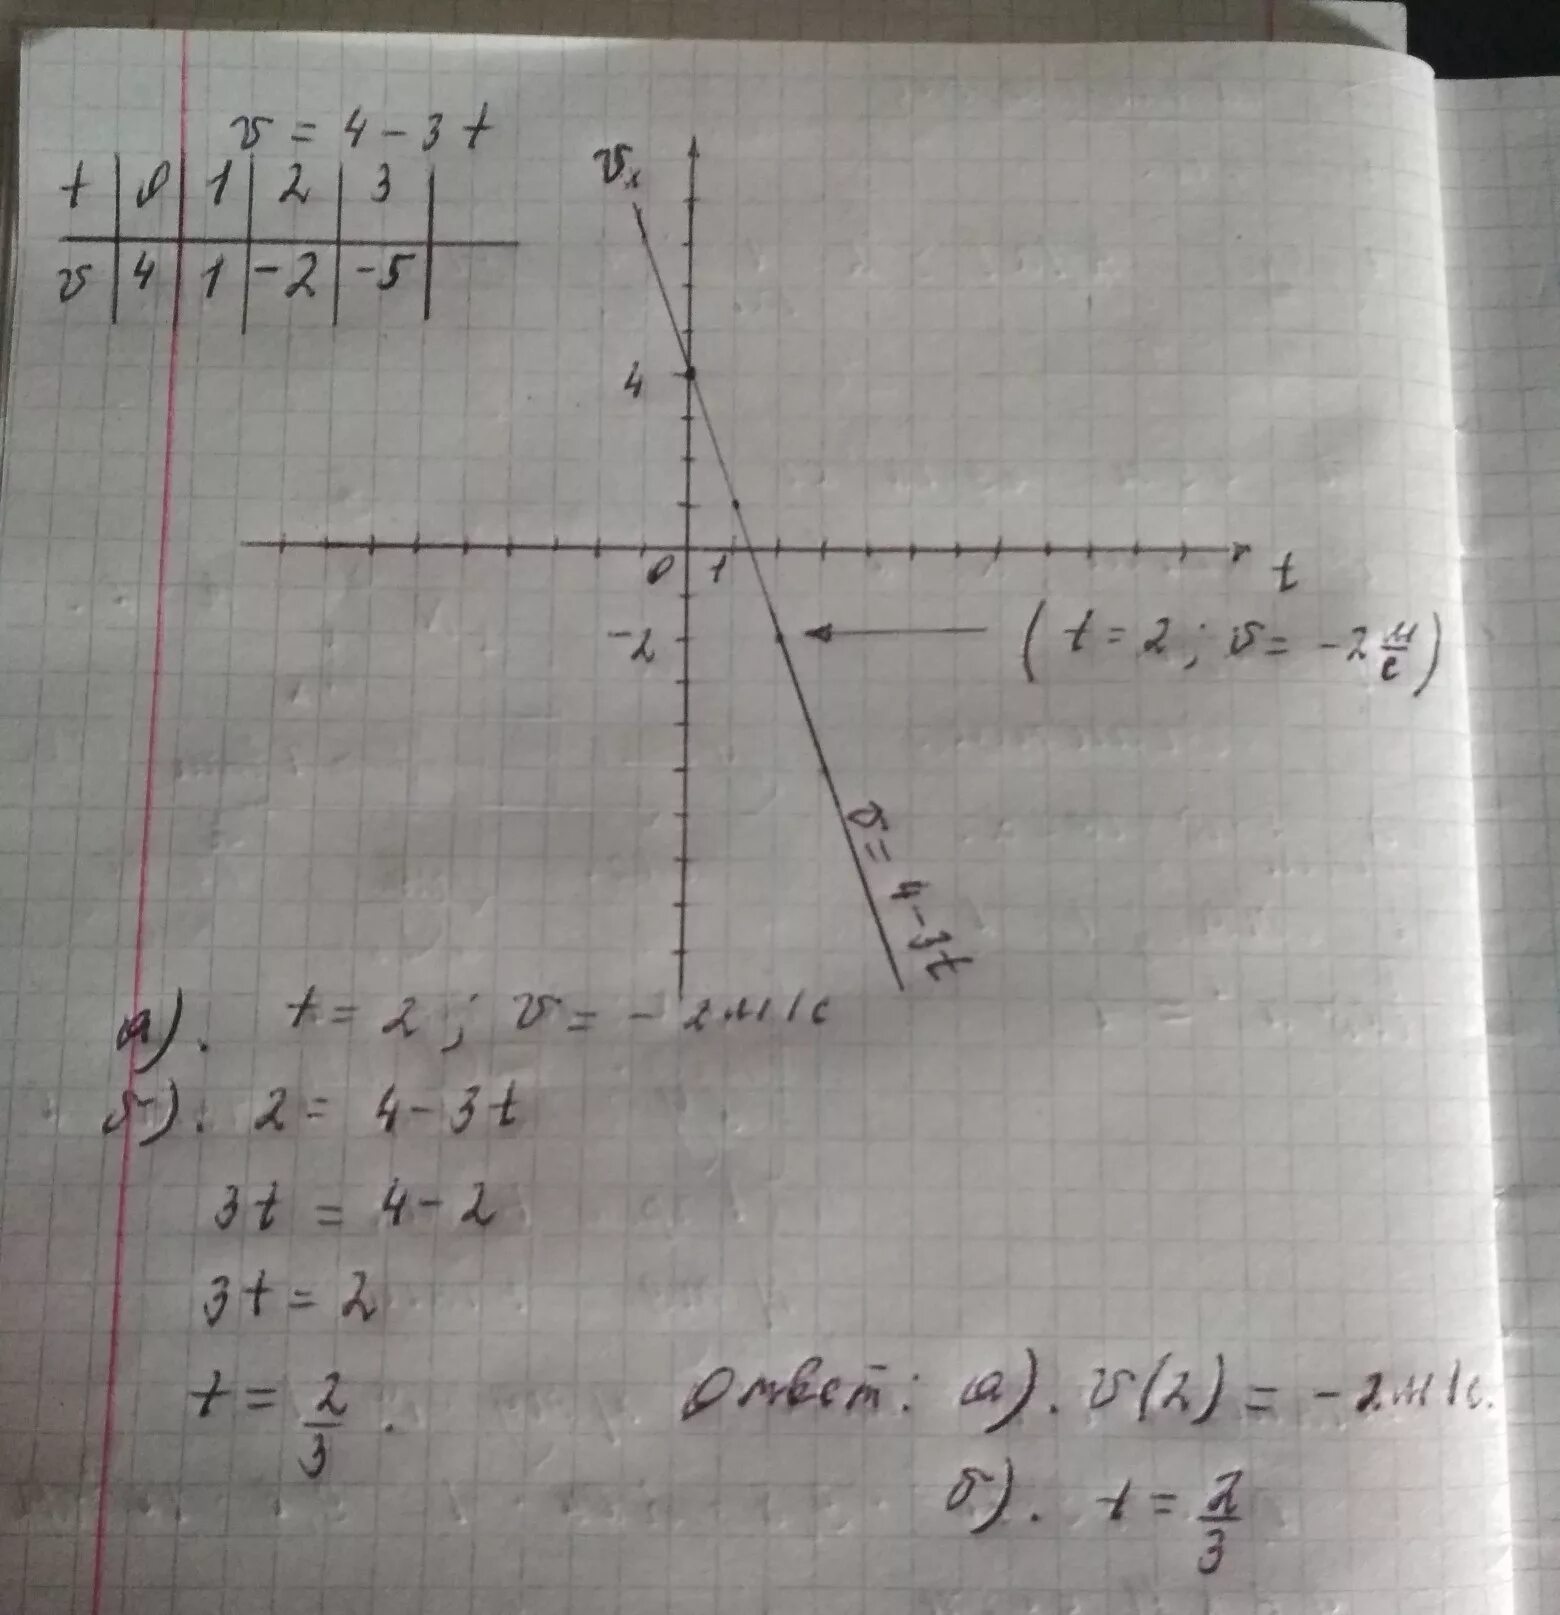 v = 4 - 3t
t | 0 | 1 | 2 | 3
v | 4 | 1 | -2 | -5
vₓ
4
0 1
t
-2
(t = 2; v = -2 м/с)
v = 4 - 3t
а). t = 2; v = -2 м/с
б). 2 = 4 - 3t
3t = 4 - 2
3t = 2
t = 2/3.
Ответ: а). v(2) = -2 м/с.
б). t = 2/3